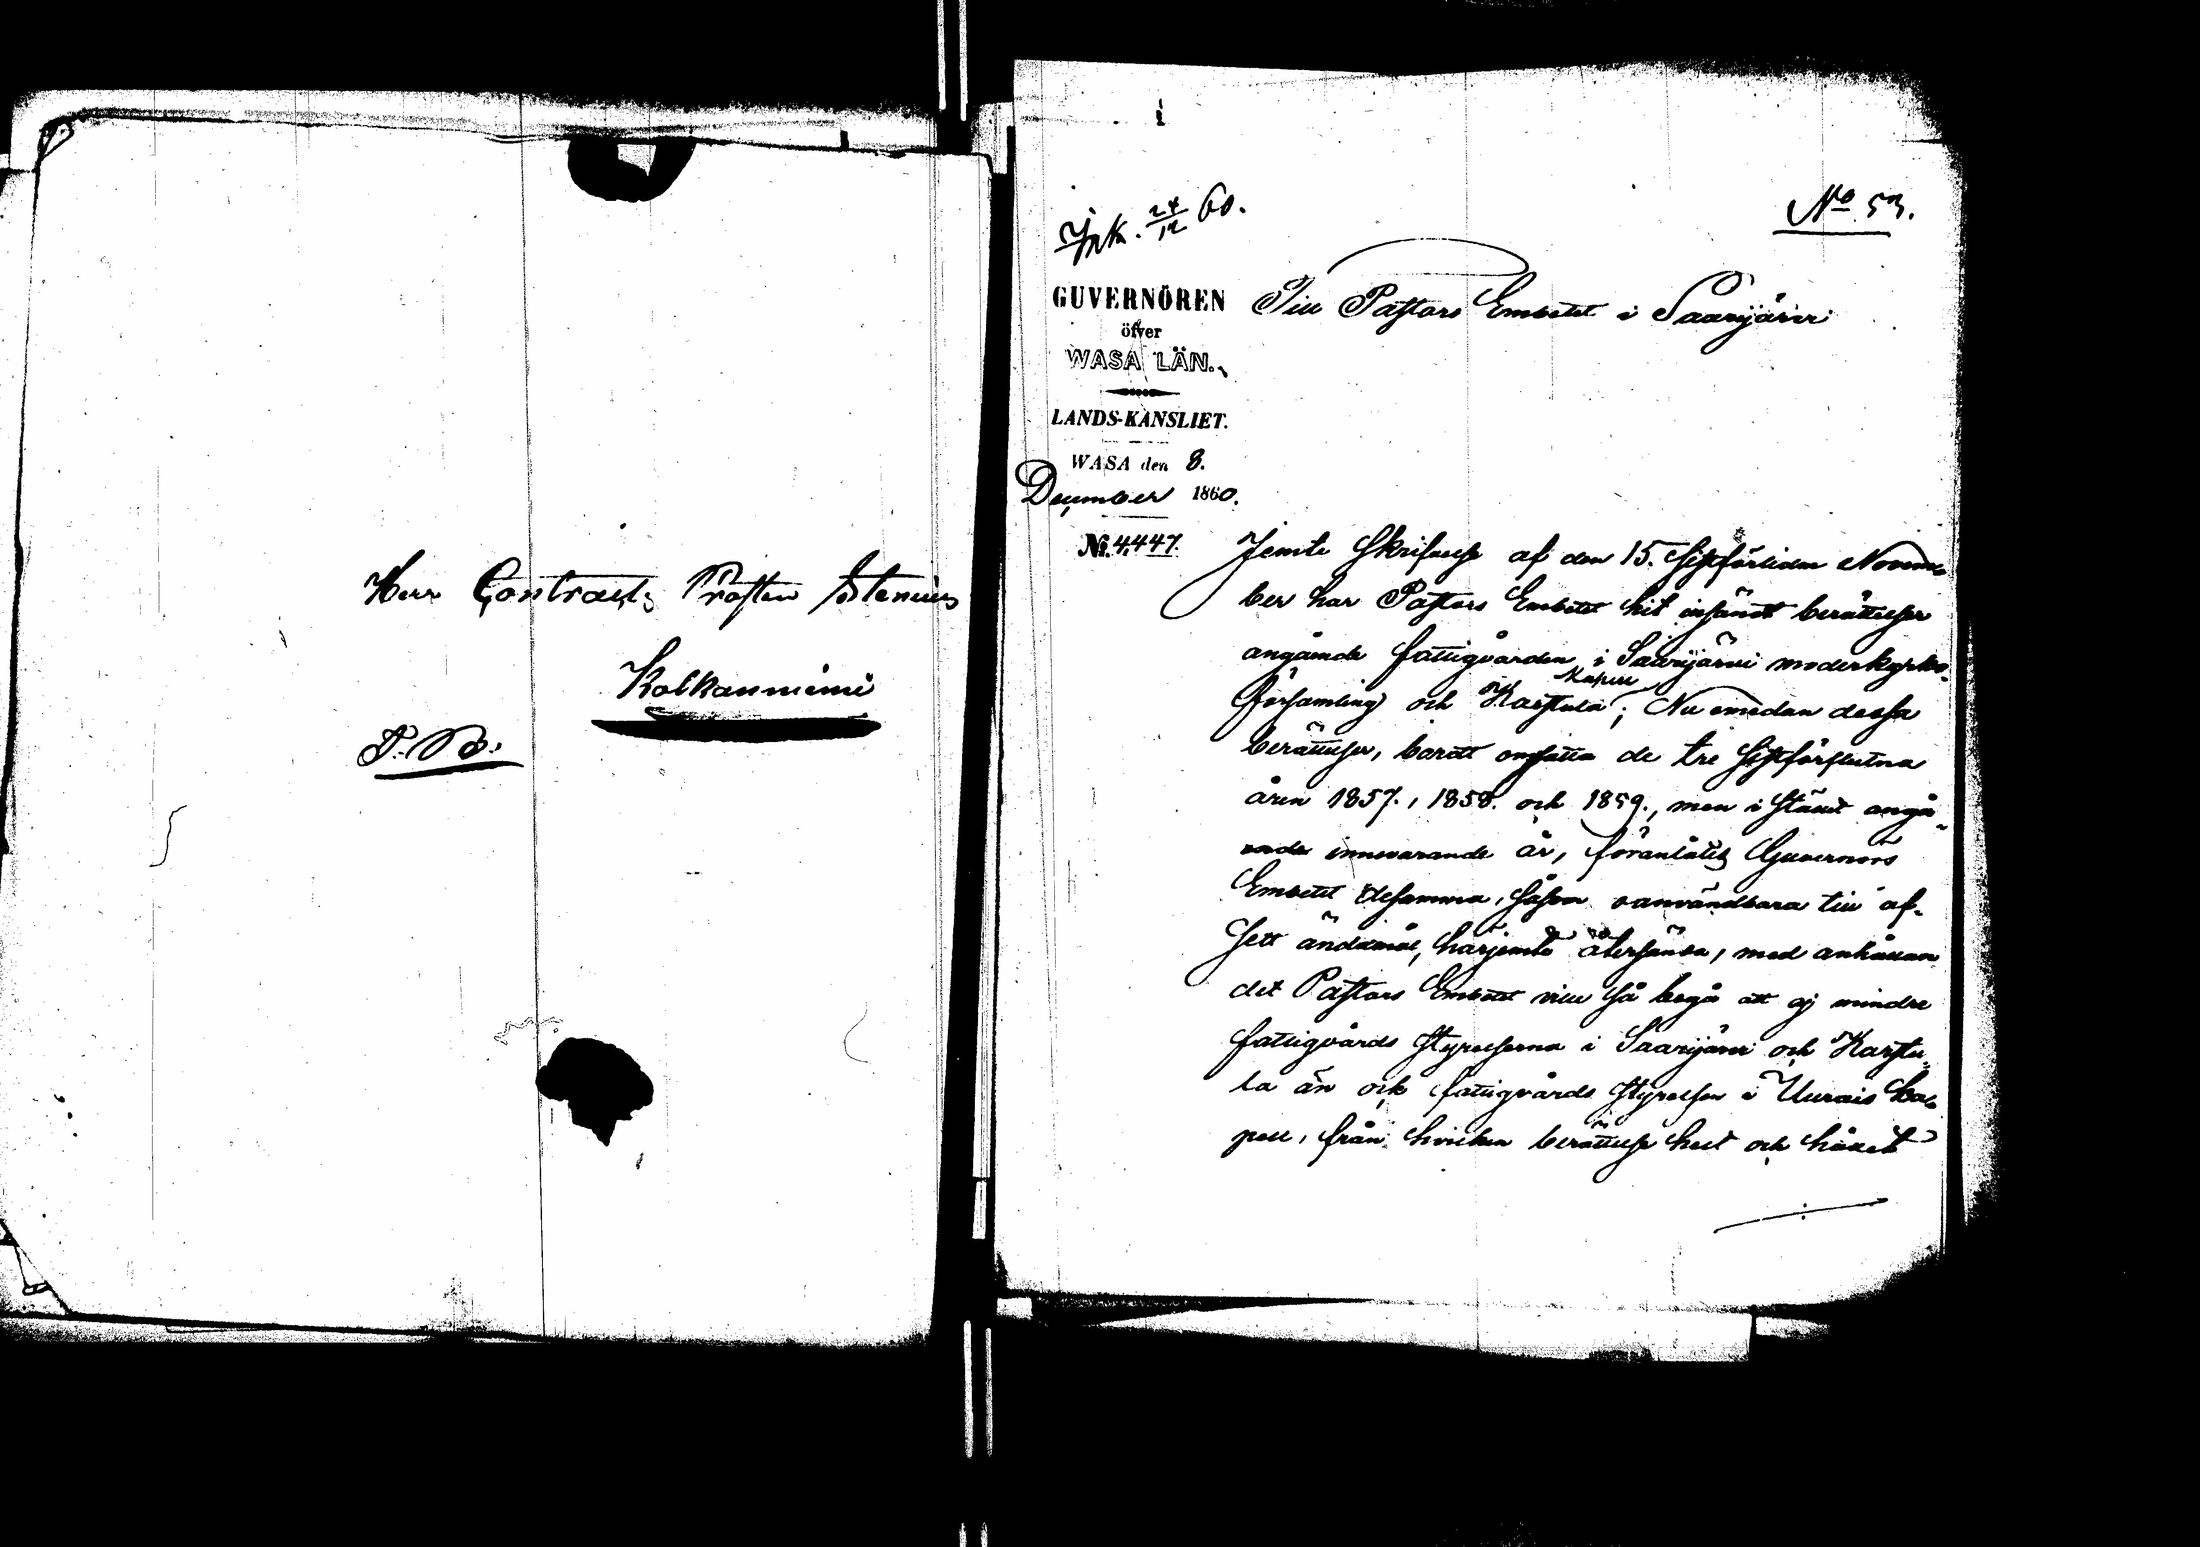 Herr Contracts Prosten Stenius
Kolkanniemi
T. B.
Ink. 24/12 60.
No 53.
GUVERNÖREN
öfver
WASA LÄN.
LANDS-KANSLIET.
WASA den 8.
December 1860.
No. 4447.
Till Pastors Embetet i Saarijärvi
Jemte skrifvelse af den 15. sistförliden Novem-
ber har Pastors Embetet hit insändt berättelser
angående fattigvården i Saarijärvi moderkyrko-
församling och Karstula Kapell; Nu emedan dessa
berättelser, bordt omfatta de tre sistförflutna
åren 1857., 1858. och 1859., men i stället angå
innevarande år, föranlåtes Guvernörs
Embetet desamma, såsom oanvändbara till af-
sett ändamål, härjemte återsända, med anhållan
det Pastors Embetet ville så begå att ej mindre
fattigvårds styrelserna i Saarijärvi och Karstu-
la än ock fattigvårds styrelsen i Uurais ka-
pell, från hvilken berättelse helt och hållet